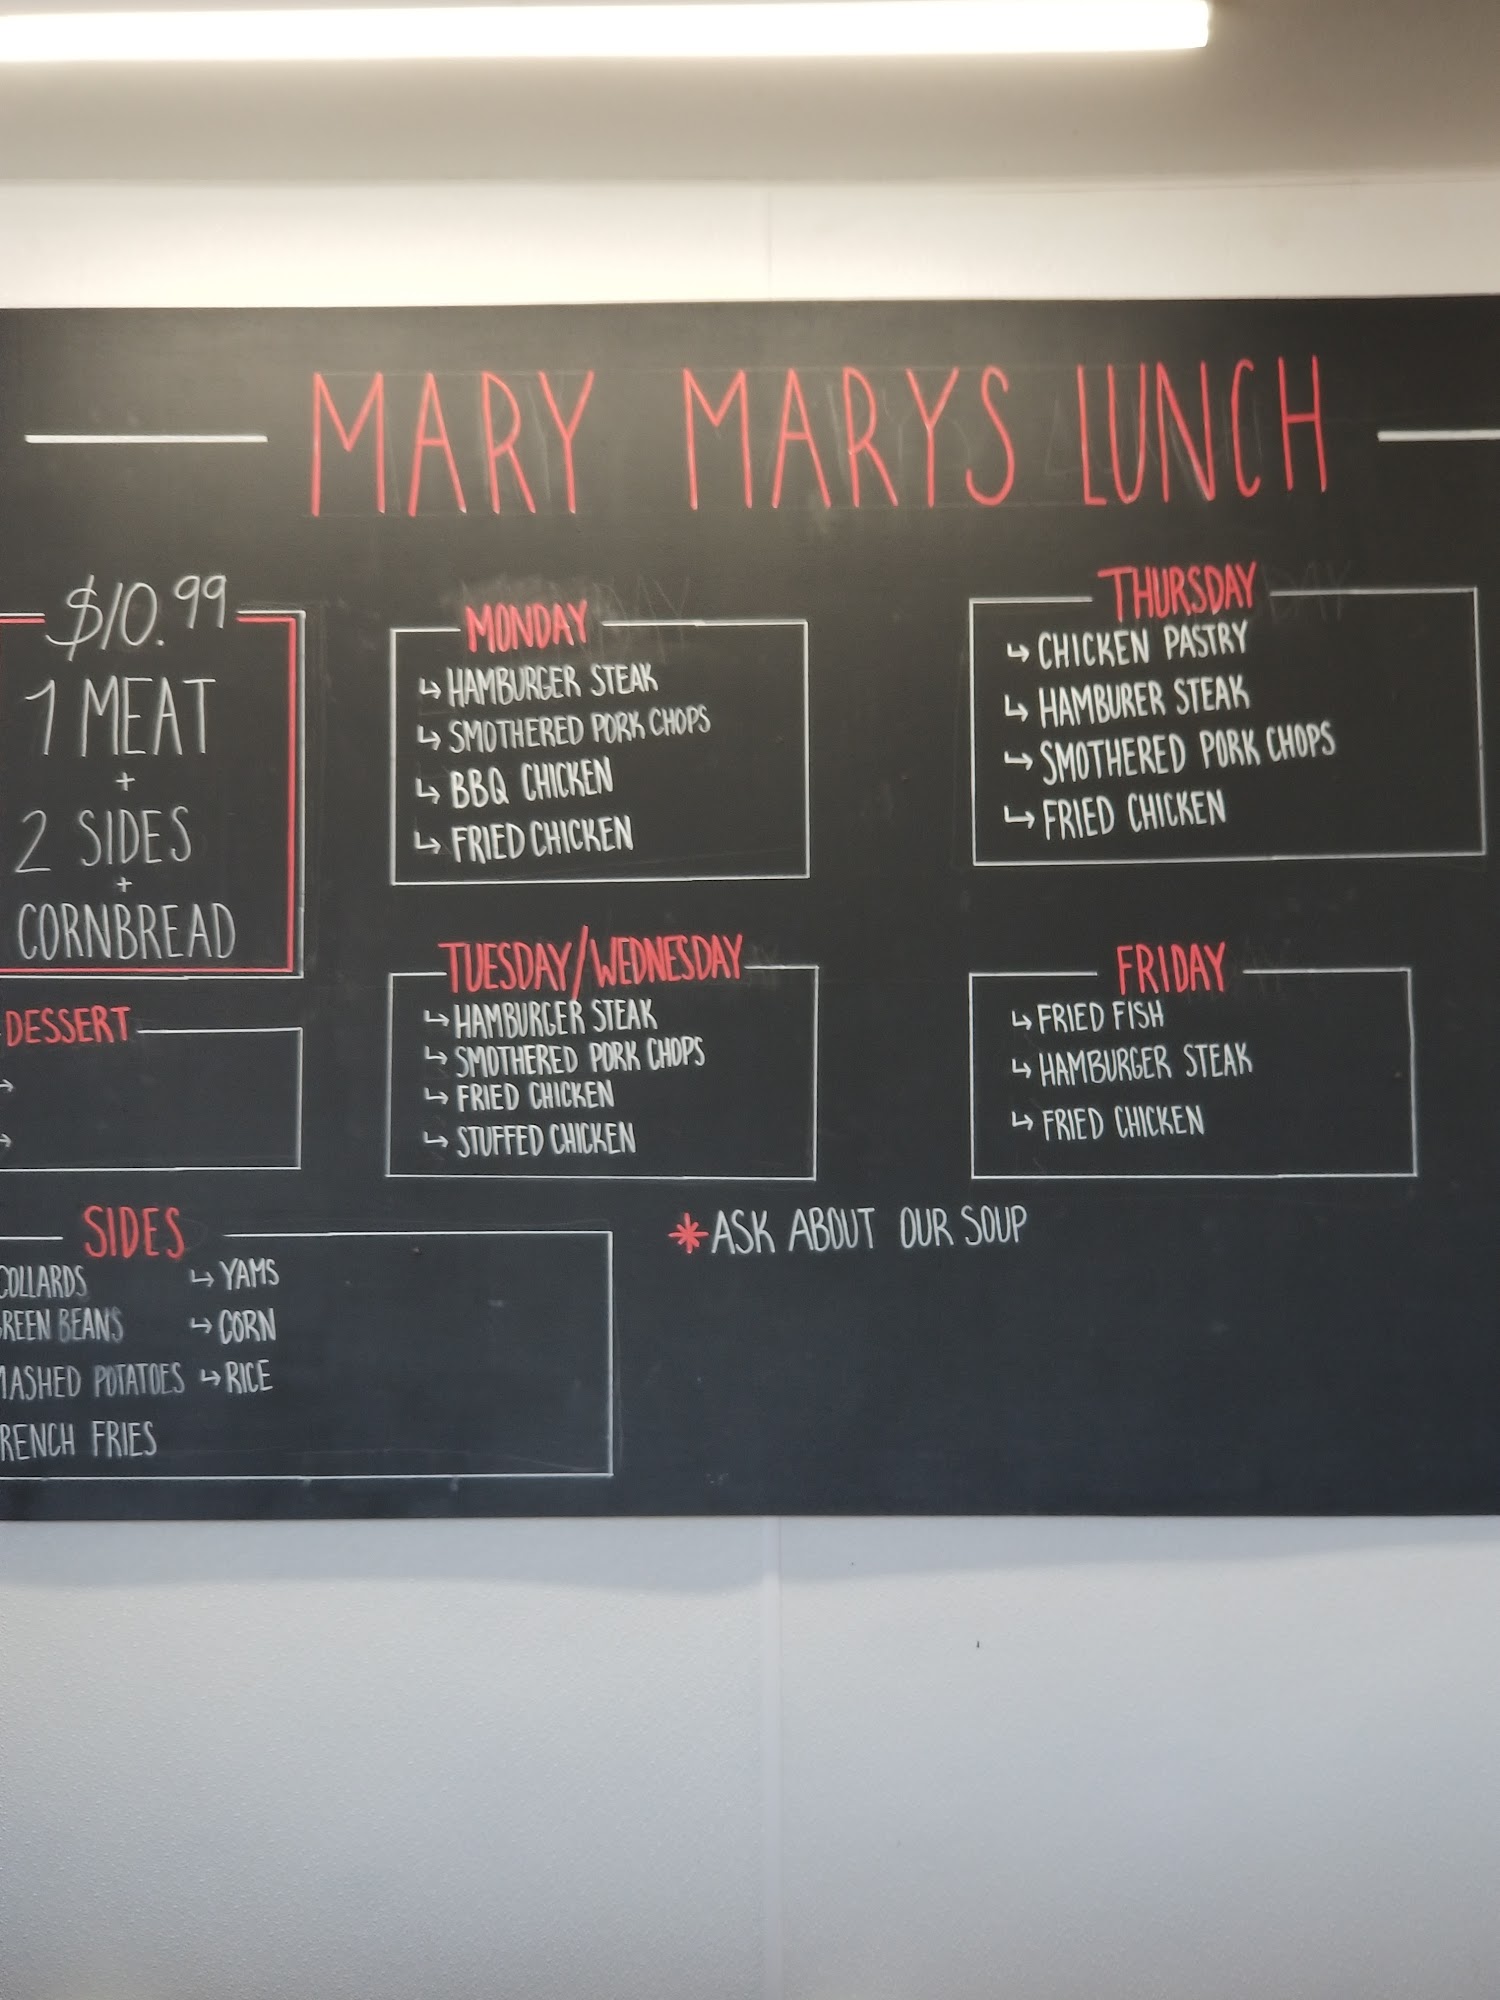 MARY MARYS LUNCH
$10.99
1 MEAT
+
2 SIDES
+
CORNBREAD
DESSERT
MONDAY
↳ HAMBURGER STEAK
↳ SMOTHERED PORK CHOPS
↳ BBQ CHICKEN
↳ FRIED CHICKEN
TUESDAY/WEDNESDAY
↳ HAMBURGER STEAK
↳ SMOTHERED PORK CHOPS
↳ FRIED CHICKEN
↳ STUFFED CHICKEN
THURSDAY
↳ CHICKEN PASTRY
↳ HAMBURER STEAK
↳ SMOTHERED PORK CHOPS
↳ FRIED CHICKEN
FRIDAY
↳ FRIED FISH
↳ HAMBURGER STEAK
↳ FRIED CHICKEN
SIDES
COLLARDS
REEN BEANS
MASHED POTATOES
RENCH FRIES
↳ YAMS
↳ CORN
↳ RICE
*ASK ABOUT OUR SOUP